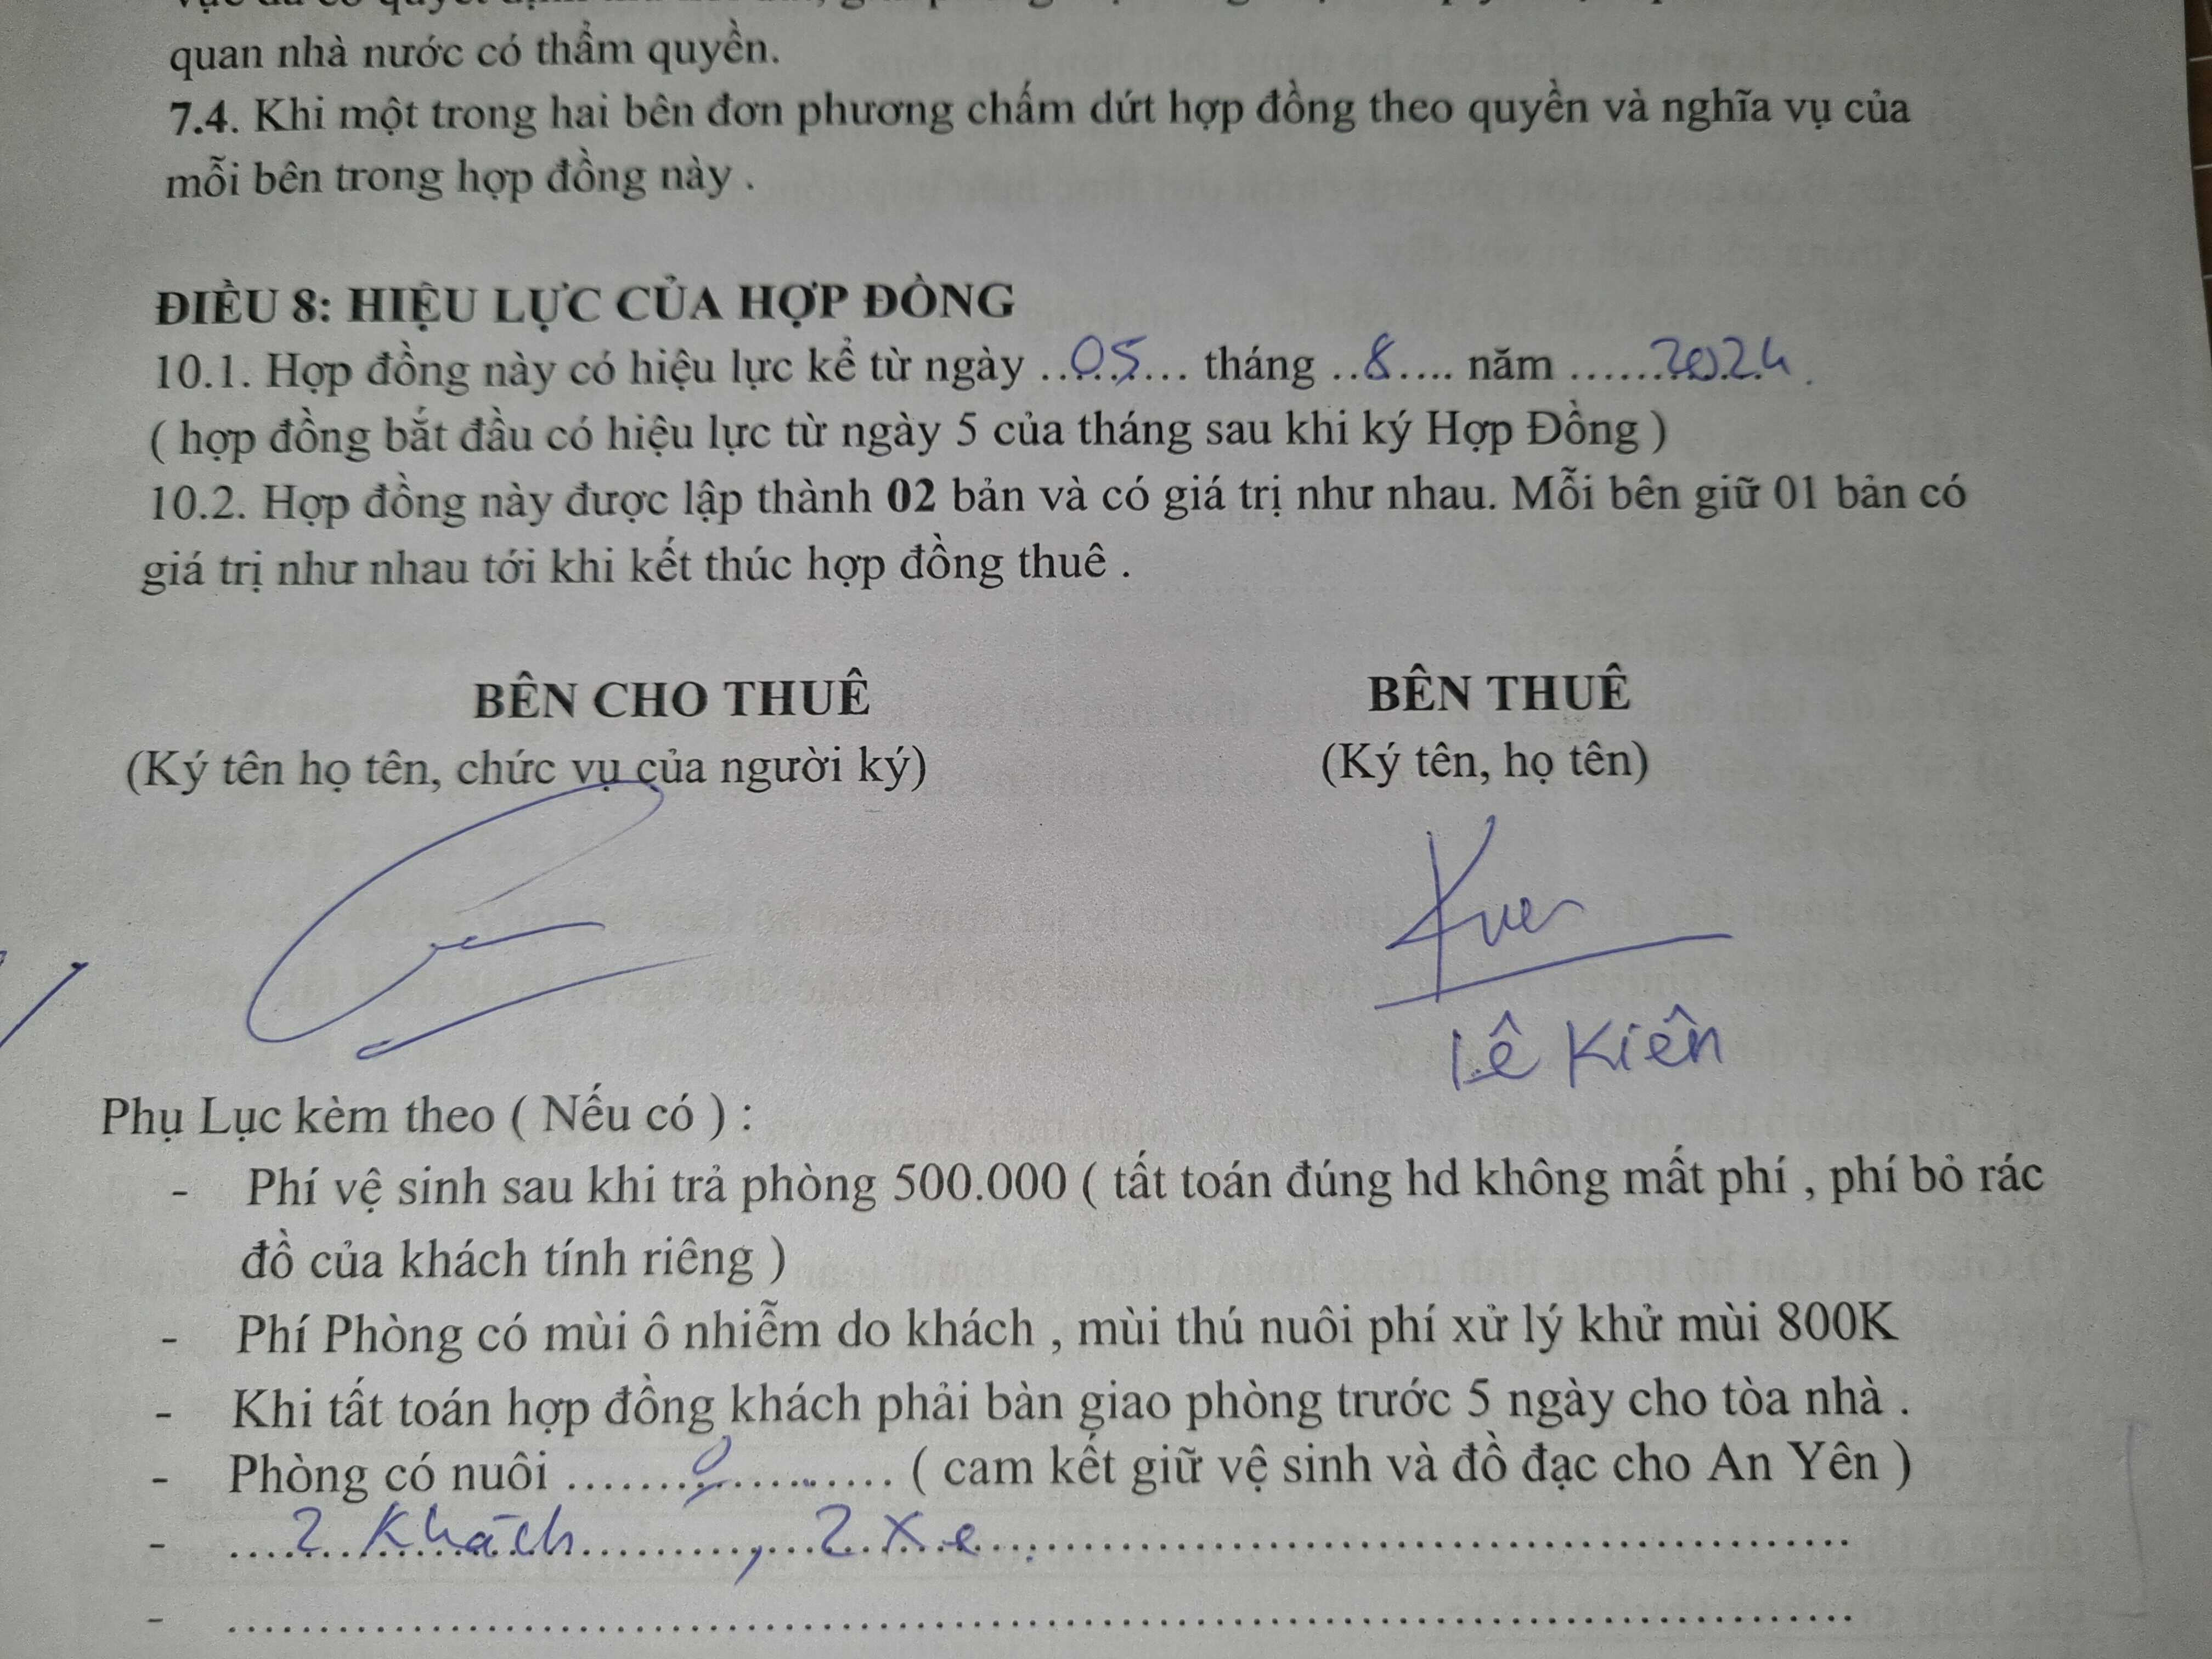 quan nhà nước có thẩm quyền.
7.4. Khi một trong hai bên đơn phương chấm dứt hợp đồng theo quyền và nghĩa vụ của
mỗi bên trong hợp đồng này .
ĐIỀU 8: HIỆU LỰC CỦA HỢP ĐỒNG
10.1. Hợp đồng này có hiệu lực kể từ ngày ..05... tháng ..8.... năm ......2024.
( hợp đồng bắt đầu có hiệu lực từ ngày 5 của tháng sau khi ký Hợp Đồng )
10.2. Hợp đồng này được lập thành 02 bản và có giá trị như nhau. Mỗi bên giữ 01 bản có
giá trị như nhau tới khi kết thúc hợp đồng thuê .
BÊN CHO THUÊ BÊN THUÊ
(Ký tên họ tên, chức vụ của người ký) (Ký tên, họ tên)
Lê Kiên
Phụ Lục kèm theo ( Nếu có ) :
- Phí vệ sinh sau khi trả phòng 500.000 ( tất toán đúng hd không mất phí , phí bỏ rác
đồ của khách tính riêng )
- Phí Phòng có mùi ô nhiễm do khách , mùi thú nuôi phí xử lý khử mùi 800K
- Khi tất toán hợp đồng khách phải bàn giao phòng trước 5 ngày cho tòa nhà .
- Phòng có nuôi .................. ( cam kết giữ vệ sinh và đồ đạc cho An Yên )
- 2 Khách, 2 xe.
- ....................................................................................